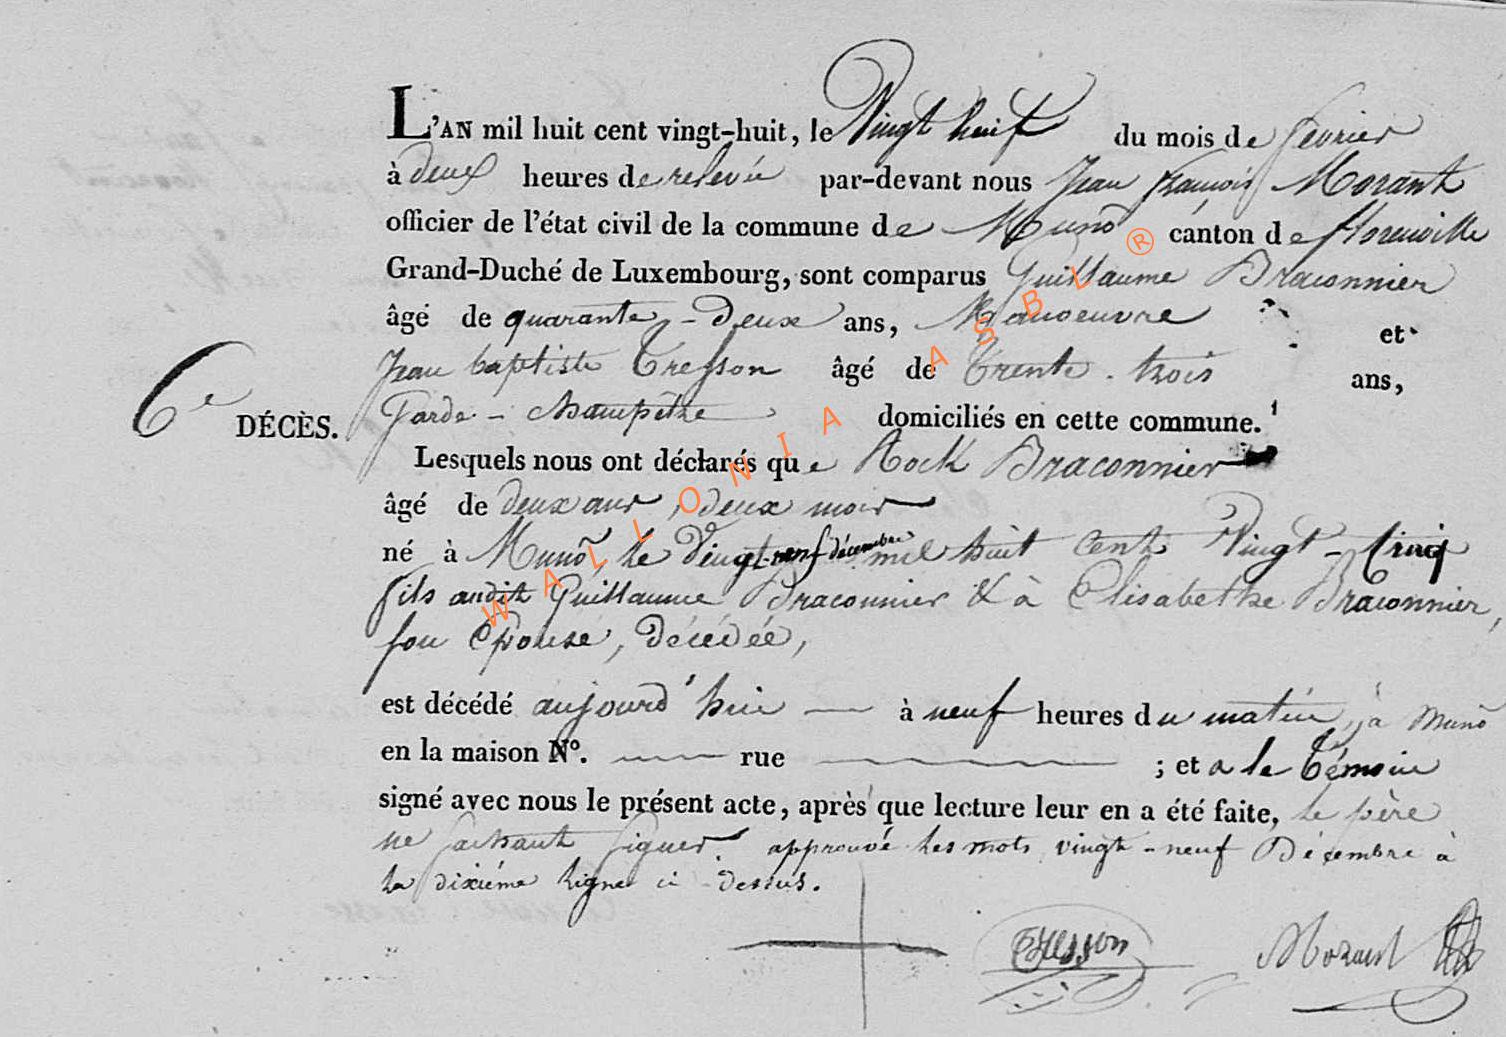 L'AN mil huit cent vingt-huit, le Vingt huit du mois de fevrier
à deux heures de relevée par-devant nous Jean françois Morant
officier de l'état civil de la commune de Muno canton de florenville
Grand-Duché de Luxembourg, sont comparus Guillaume Braconnier
âgé de quarante-Deux ans, Manoeuvre et
Jean baptiste Tresson âgé de Trente-trois ans,
6e DÉCÈS. Garde-champêtre domiciliés en cette commune.
Lesquels nous ont déclarés que Rock Braconnier
âgé de deux ans, deux mois
né à Muno, le Vingt-neuf décembre mil huit cent Vingt-Cinq
fils audit Guillaume Braconnier & à Elisabethe Braconnier,
son Epouse, décédée,
est décédé aujourd'hui à neuf heures du matin, à Muno
en la maison N°. rue ; et a le témoin
signé avec nous le présent acte, après que lecture leur en a été faite, le père
ne sachant signer. approuvé les mots vingt-neuf Décembre à
la dixiéme ligne ci-dessus.
Tresson Morant
WALLONIA ASBL ®